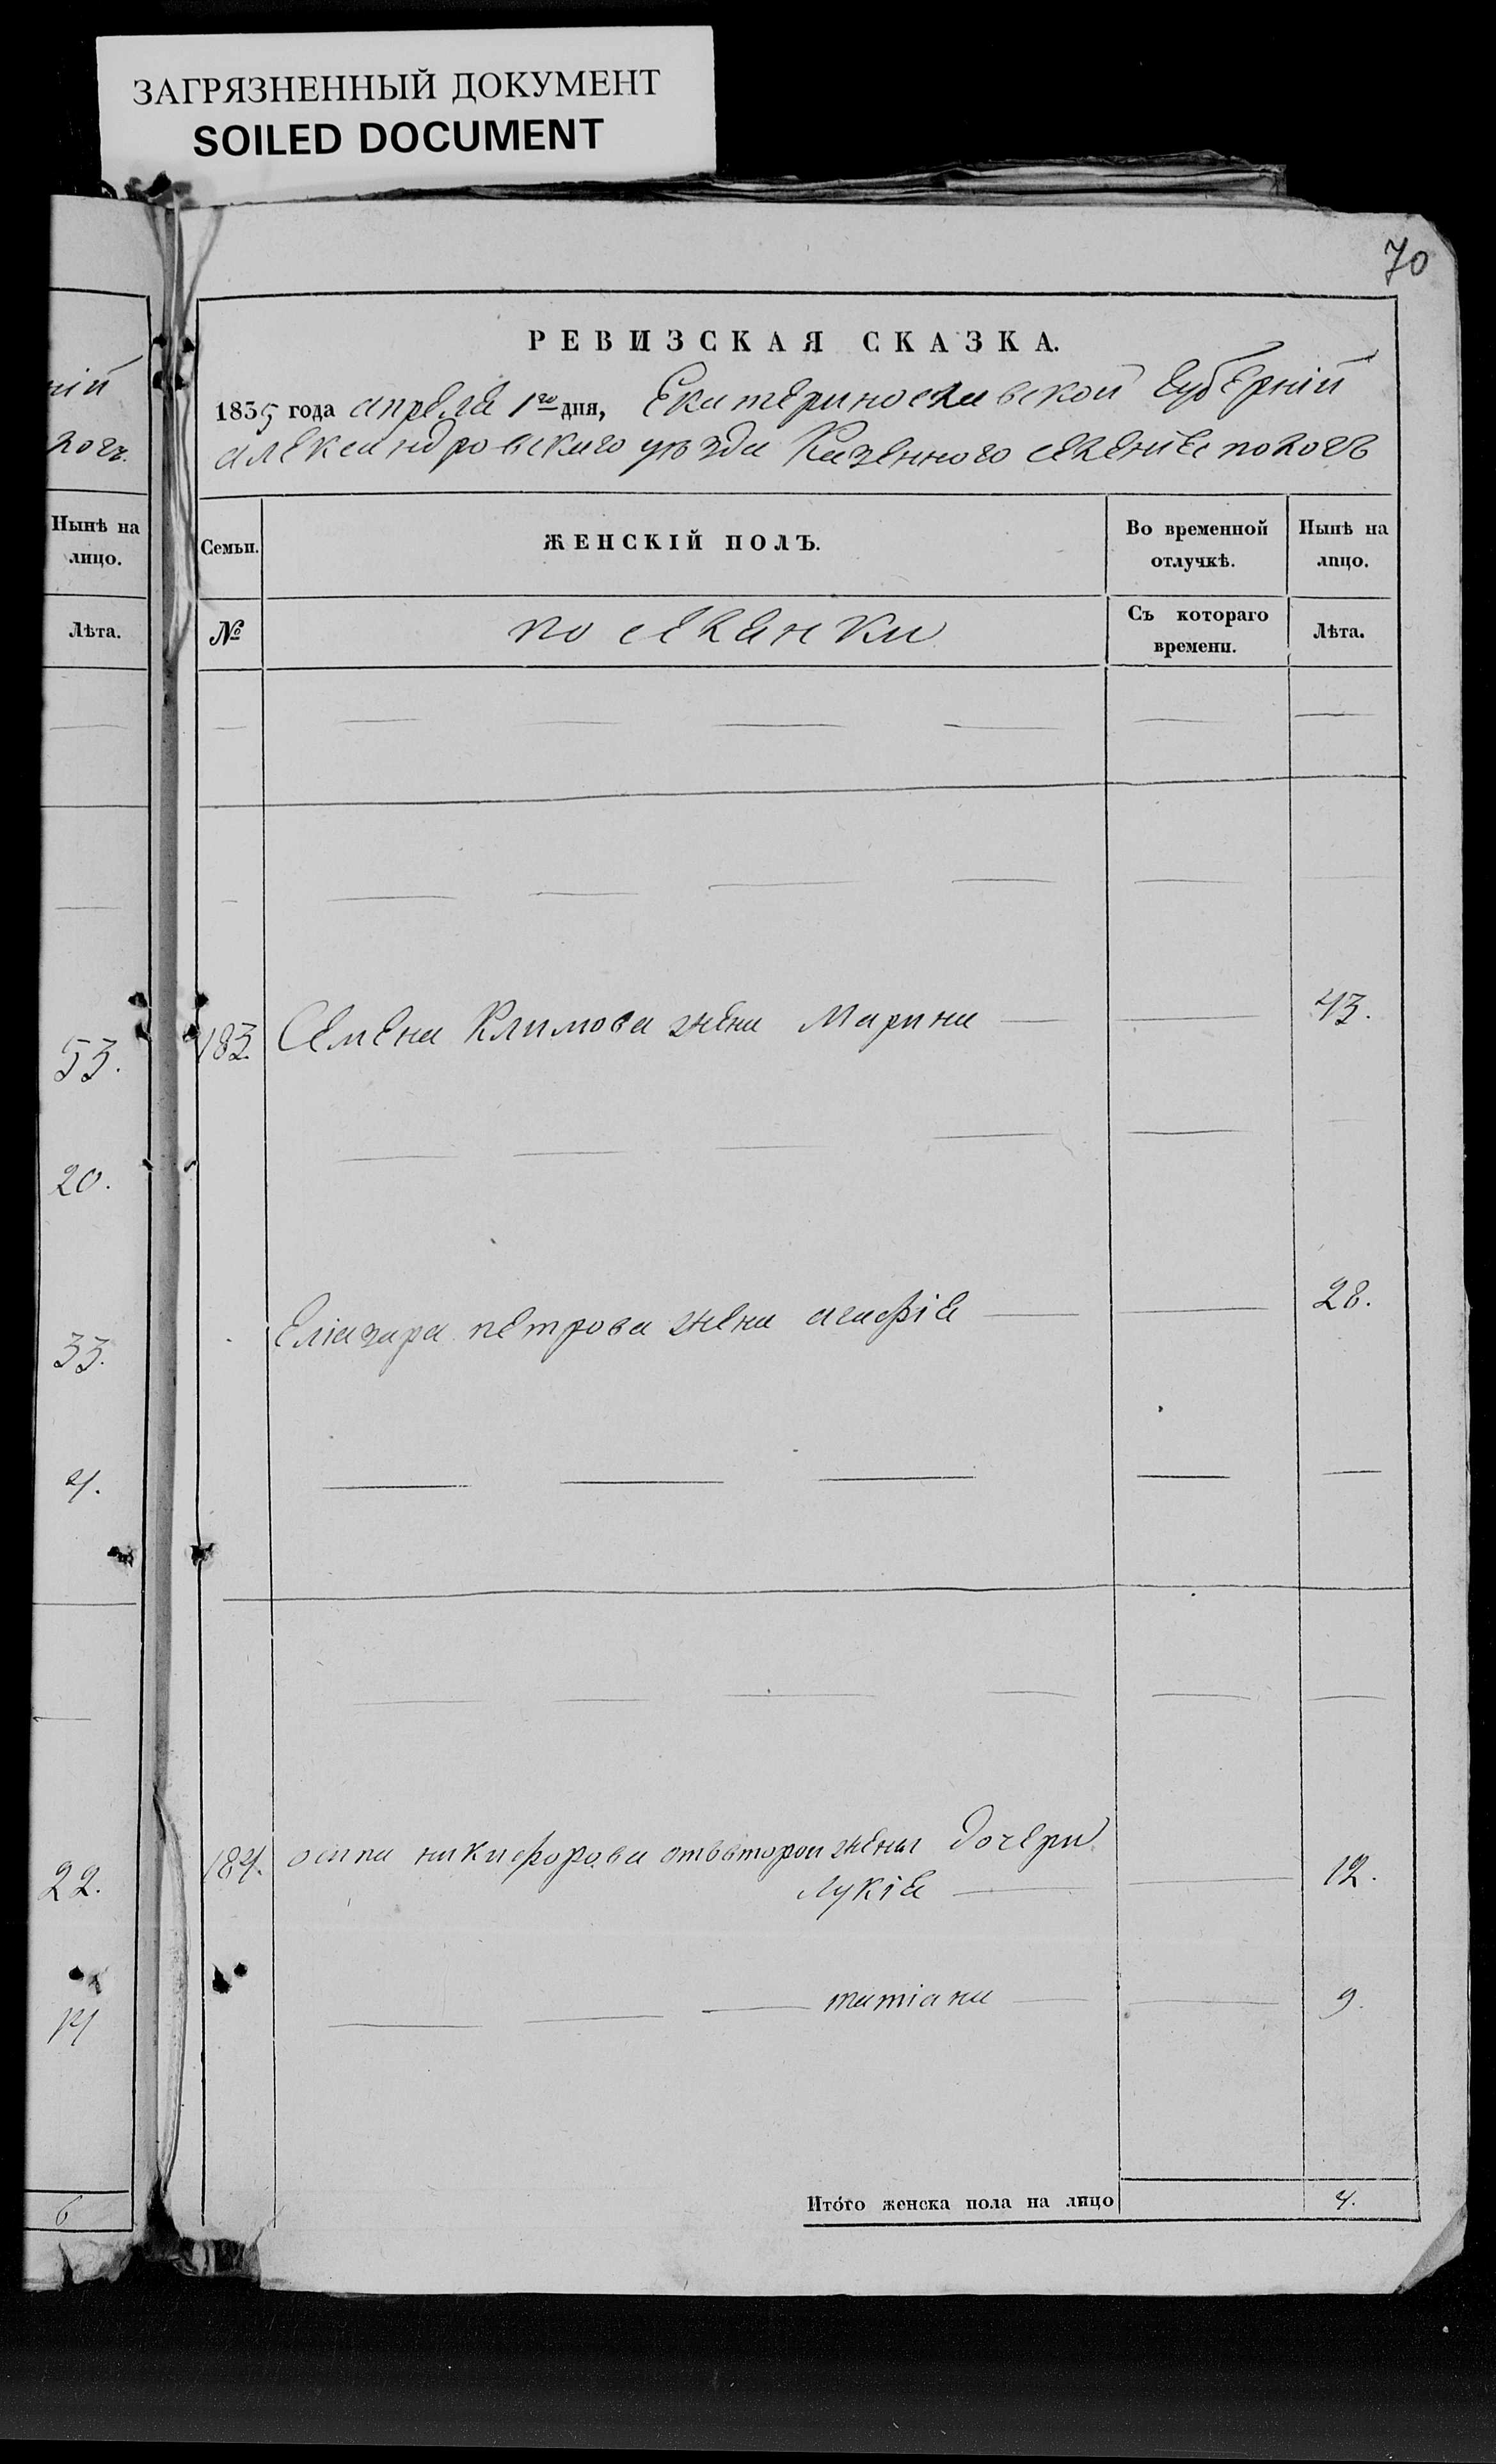 ЗАГРЯЗНЕННЫЙ ДОКУМЕНТ
SOILED DOCUMENT
70
РЕВИЗСКАЯ СКАЗКА.
1835 года апреля 1го дня, Екатеринославской Губерній
александровского уезда Казенного селения
Семьи.
ЖЕНСКІЙ ПОЛЪ.
Во временной отлучкѣ.
Нынѣ на лицо.
№
поселянки
Съ котораго времени.
Лѣта.
183. Семена Климова жена Марина 43.
Еліазара петрова жена агафія 28.
184. осипа никифорова отвторои жены Дочери
Лукія 12.
татіана 9.
Итого женска пола на лицо 4.
ній
Нынѣ на
лицо.
Лѣта.
53.
20.
33.
4.
22.
14
6